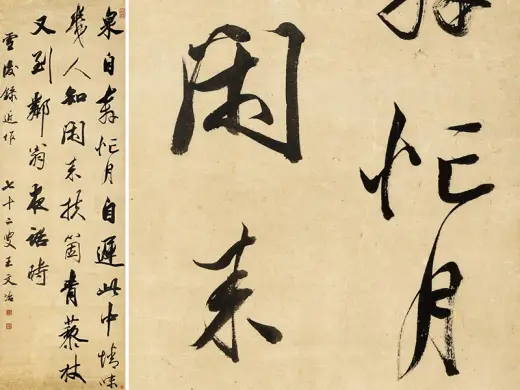 泉自奔忙月自遲此中情味
幾人知閑來扶箇青藜杖
又到鄰翁夜話時
雪後錄近作 七十二叟王文治
忙月
閑來